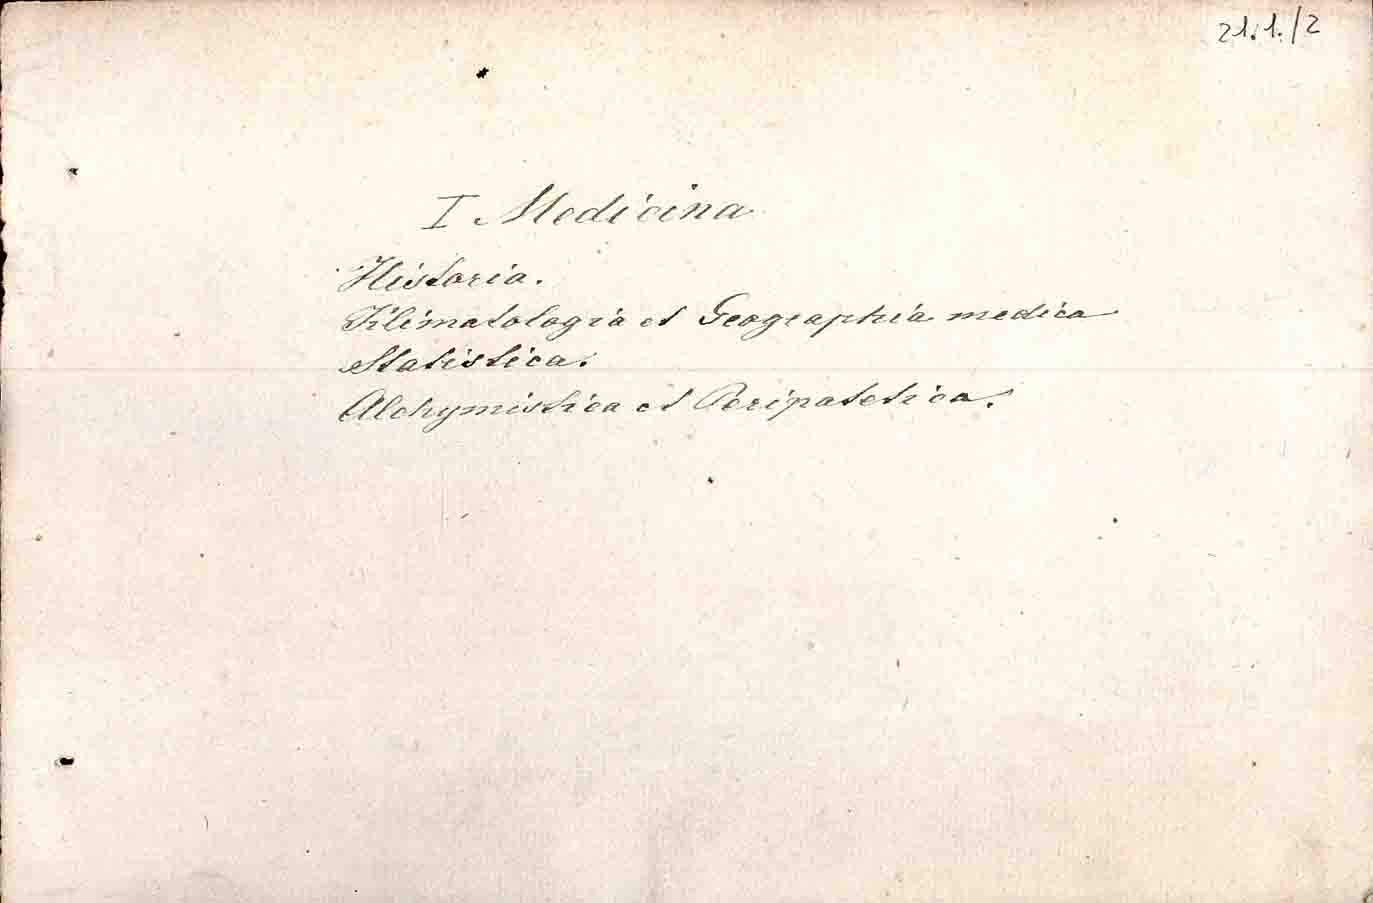 21.1./2
I Medicina
Historia.
Klimatologia et Geographia medica
Statistica.
Alchymistica et Peripatetica.